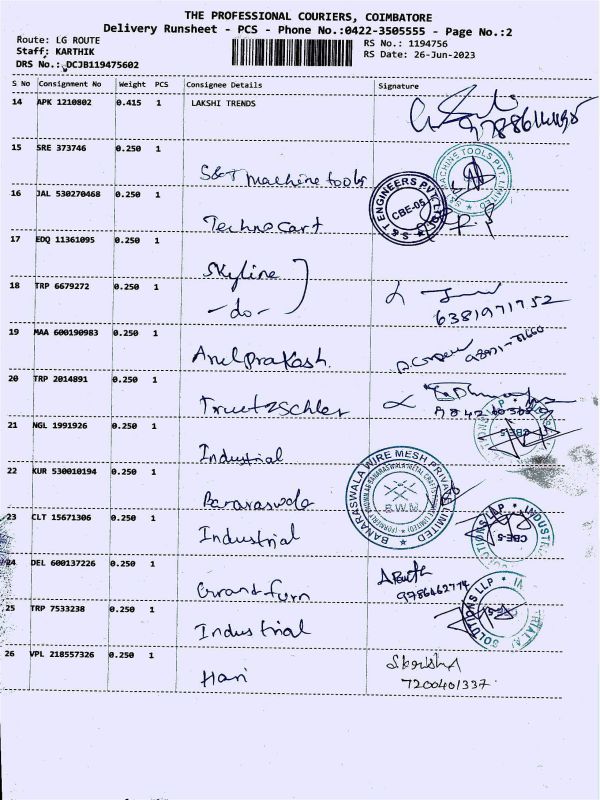 THE PROFESSIONAL COURIERS, COIMBATORE
Delivery Runsheet - PCS - Phone No.:0422-3505555 - Page No.:2
Route: LG ROUTE
Staff: KARTHIK
DRS No.: DCJB119475602
RS No.: 1194756
RS Date: 26-Jun-2023
S No Consignment No Weight PCS Consignee Details Signature
14 APK 1210802 0.415 1 LAKSHI TRENDS
15 SRE 373746 0.250 1
S&T machine tools
16 JAL 530270468 0.250 1
S & T ENGINEERS PVT. LTD
CBE-05
Techno cart
17 EDQ 11361095 0.250 1
Skyline
18 TRP 6679272 0.250 1
-do-
6381971752
19 MAA 600190983 0.250 1
Anil prakash.
20 TRP 2014891 0.250 1
Truetzschler
21 NGL 1991926 0.250 1
Industrial
22 KUR 530010194 0.250 1
BANARASWALA WIRE MESH PRIVATE LIMITED
B.W.M
Banaraswala
23 CLT 15671306 0.250 1
Industrial
CBE-5
24 DEL 600137226 0.250 1
Grand furn
9786462774
25 TRP 7533238 0.250 1
Industrial
SOLUTIONS LLP
26 VPL 218557326 0.250 1
Hari
7200401337